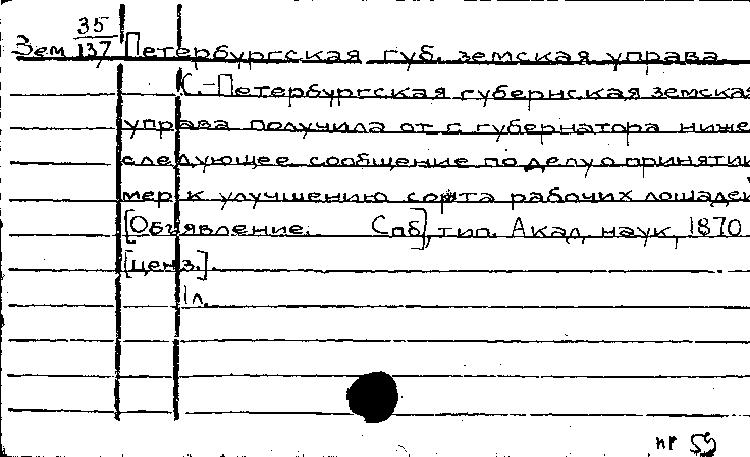 35
Зем 137 Петербургская губ. земская управа
С.-Петербургская губернская земская
управа получила от г. губернатора ниже
следующее сообщение по делу о принятии
мер к улучшению сорта рабочих лошадей
[Объявление. Спб], тип. Акад. наук, 1870
[ценз.].
1 л.
нр 59